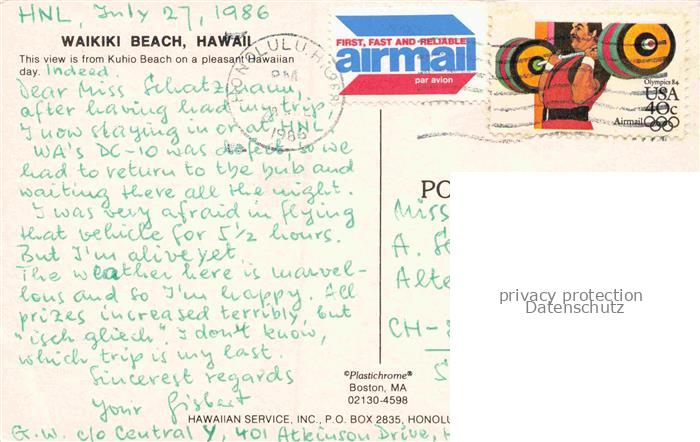 HNL, July 27, 1986
WAIKIKI BEACH, HAWAII
This view is from Kuhio Beach on a pleasant Hawaiian
day. Indeed.
Dear Miss Schatzmann,
after having had my trip,
I now staying in once HNL
WA's DC-10 was defect, so we
had to return to the hub and
waiting there all the night.
I was very afraid in flying
that vehicle for 5½ hours.
But I'm alive yet.
The weather here is marvel-
lous and so I'm happy. All
prizes increased terribly, but
"isch gliech". I don't know,
which trip is my last.
Sincerest regards
Your Gisbert
G.W. c/o Central Y, 401 Atkinson Drive, H
FIRST, FAST AND RELIABLE
airmail
par avion
HONOLULU HI
PM
1986
Olympics 84
USA
40c
Airmail
PO
Miss
A.
Alte
CH-
privacy protection
Datenschutz
©Plastichrome®
Boston, MA
02130-4598
HAWAIIAN SERVICE, INC., P.O. BOX 2835, HONOLU